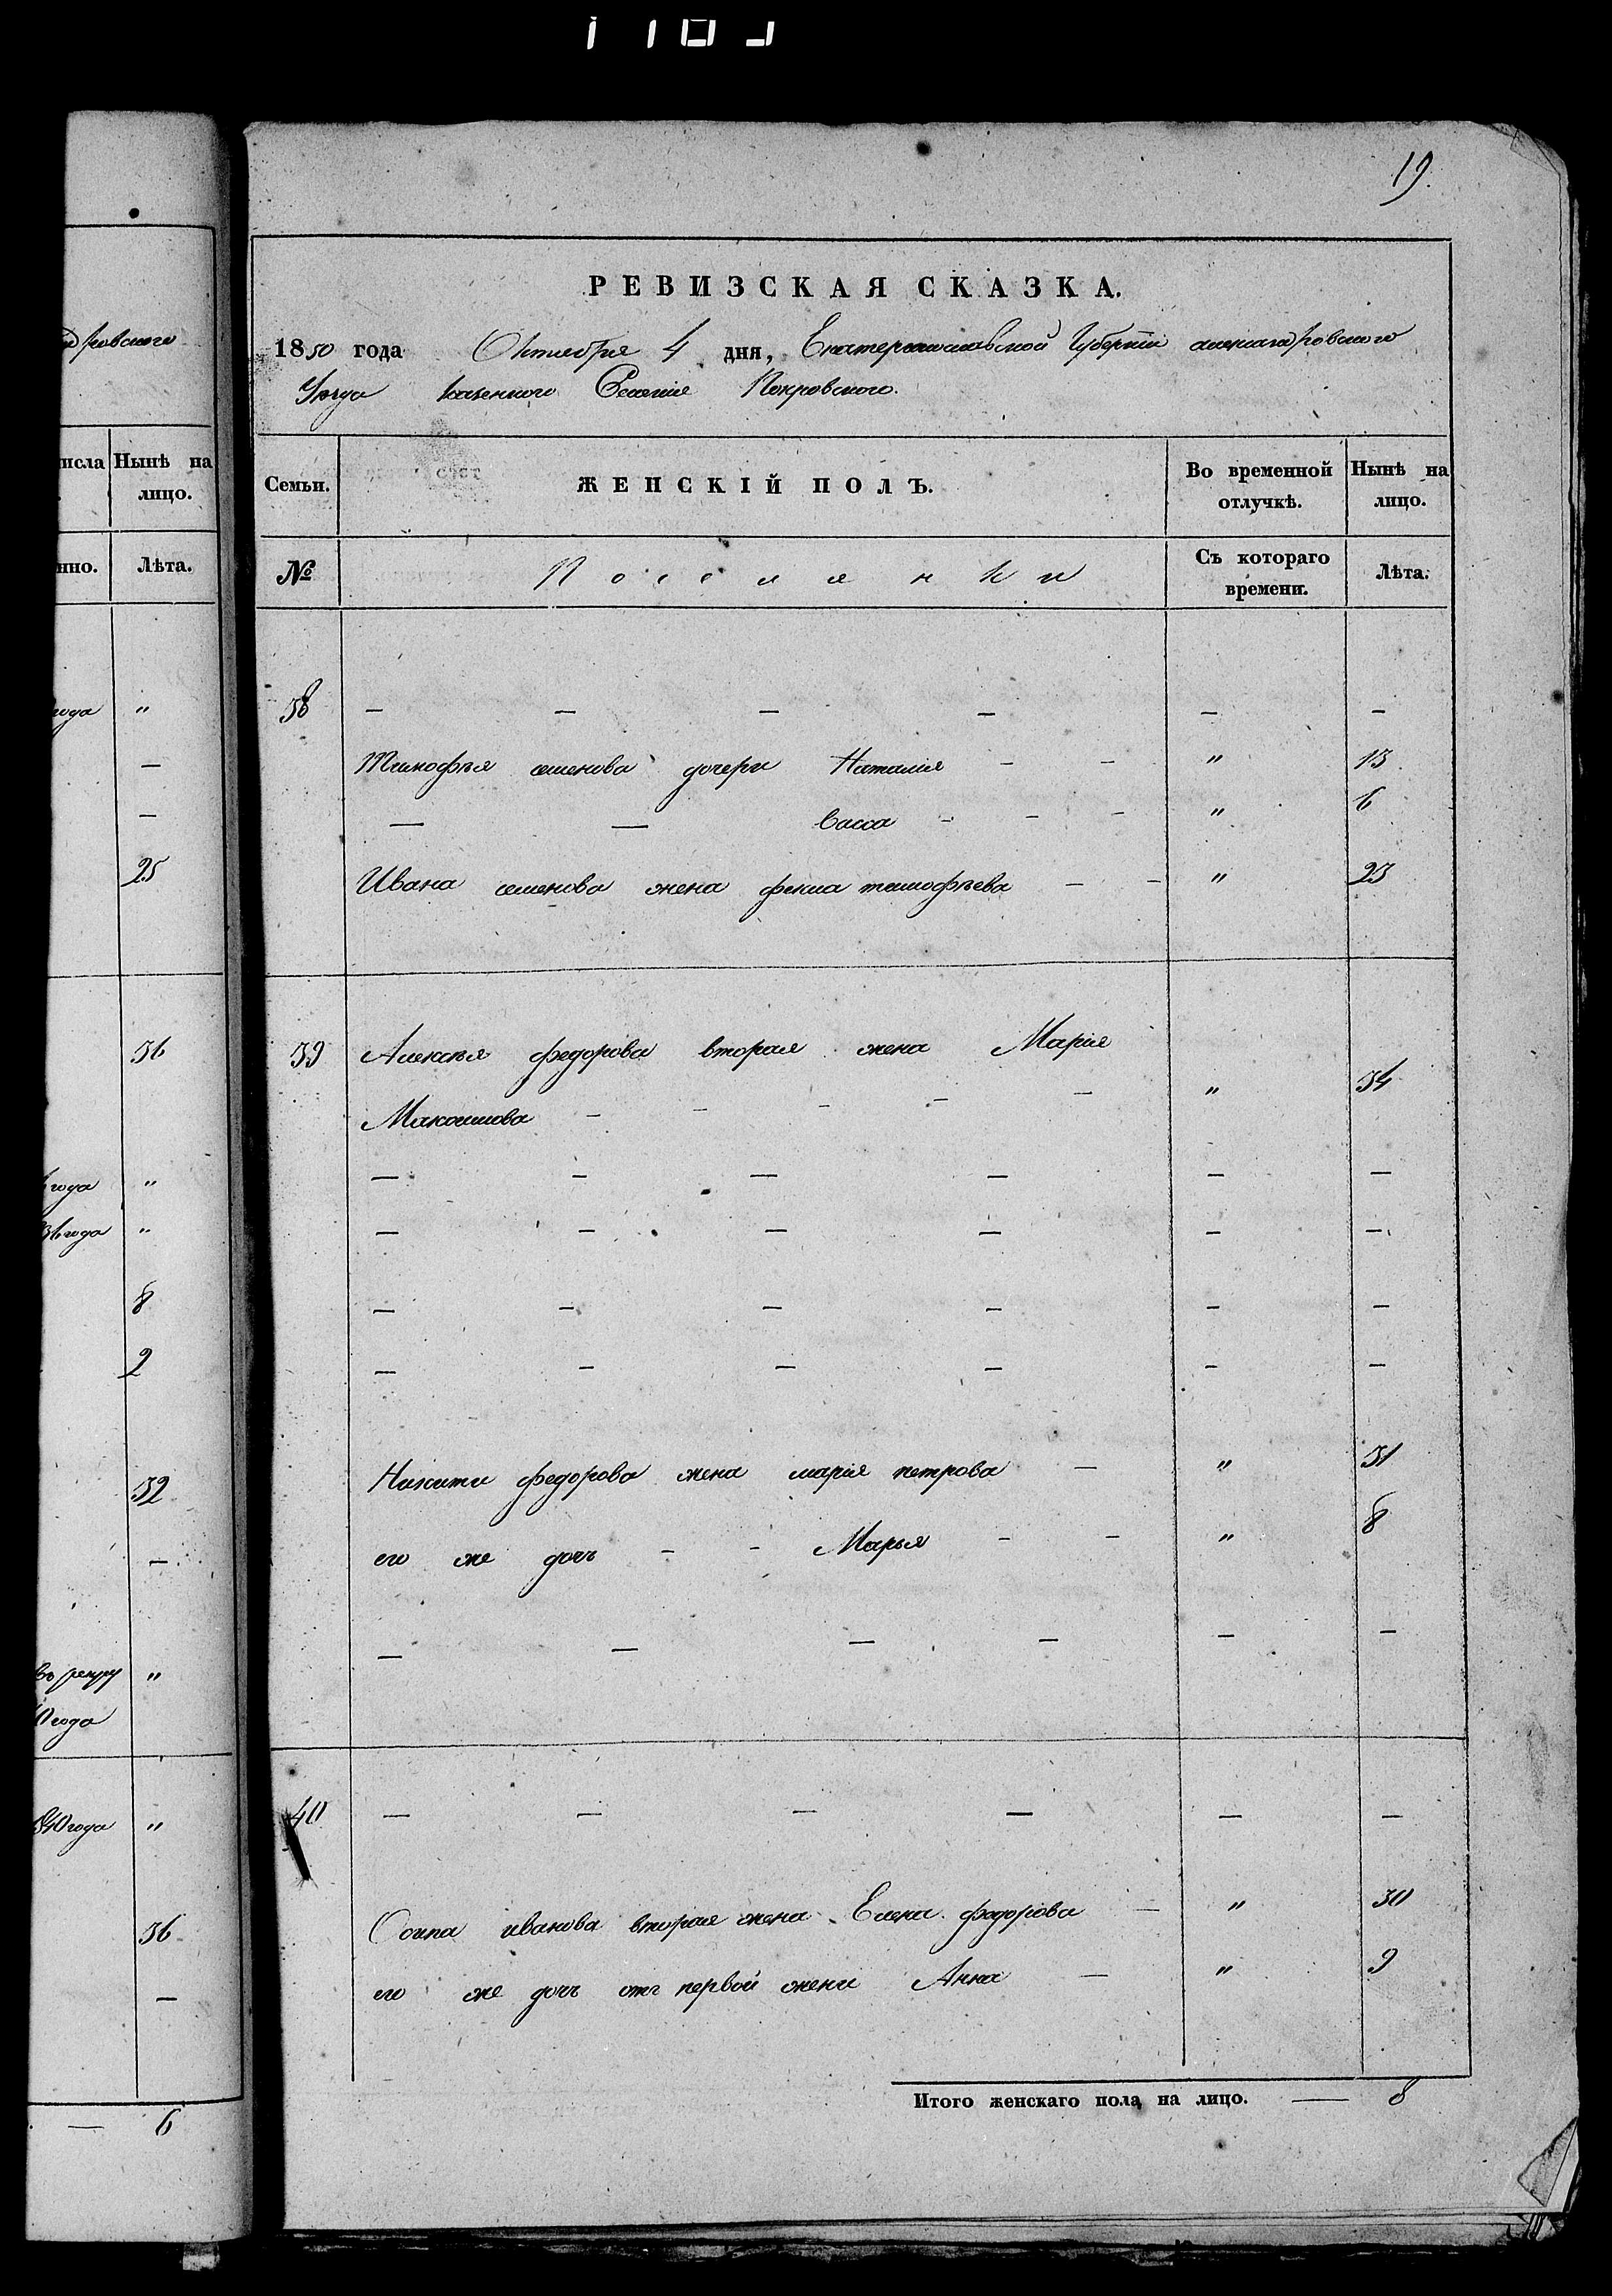 19.
РЕВИЗСКАЯ СКАЗКА.
1850 года Октября 4 дня, Екатеринославской Губернiи александровского
Уѣзда казенного Селенiя Покровского.
Семьи. ЖЕНСКIЙ ПОЛЪ. Во временной отлучкѣ. Нынѣ на лицо.
№ Поселянки Съ котораго времени. Лѣта.
38 — — — — — —
Тимофѣя семенова дочери Наталия - - " 13
— — васса - - - " 6
Ивана семенова жена фекла тимофѣева - - " 23
39 Алексѣя федорова вторая жена Марiя
Максимова - - - - - " 34
— — — — — —
— — — — — —
— — — — — —
— — — — — —
Никити федорова жена марiя петрова — " 31
его же дочь - - Марья - - " 8
— — — — — —
40 — — — — — —
Осипа иванова вторая жена Елена федорова — " 30
его же дочь отъ первой жени Анна — " 9
Итого женскаго пола на лицо. — 8
дровского
числа Нынѣ на лицо.
нно. Лѣта.
года "
—
—
25
36
года "
36 года "
8
2
32
—
въ рекру "
0 года
840 года "
36
—
— 6